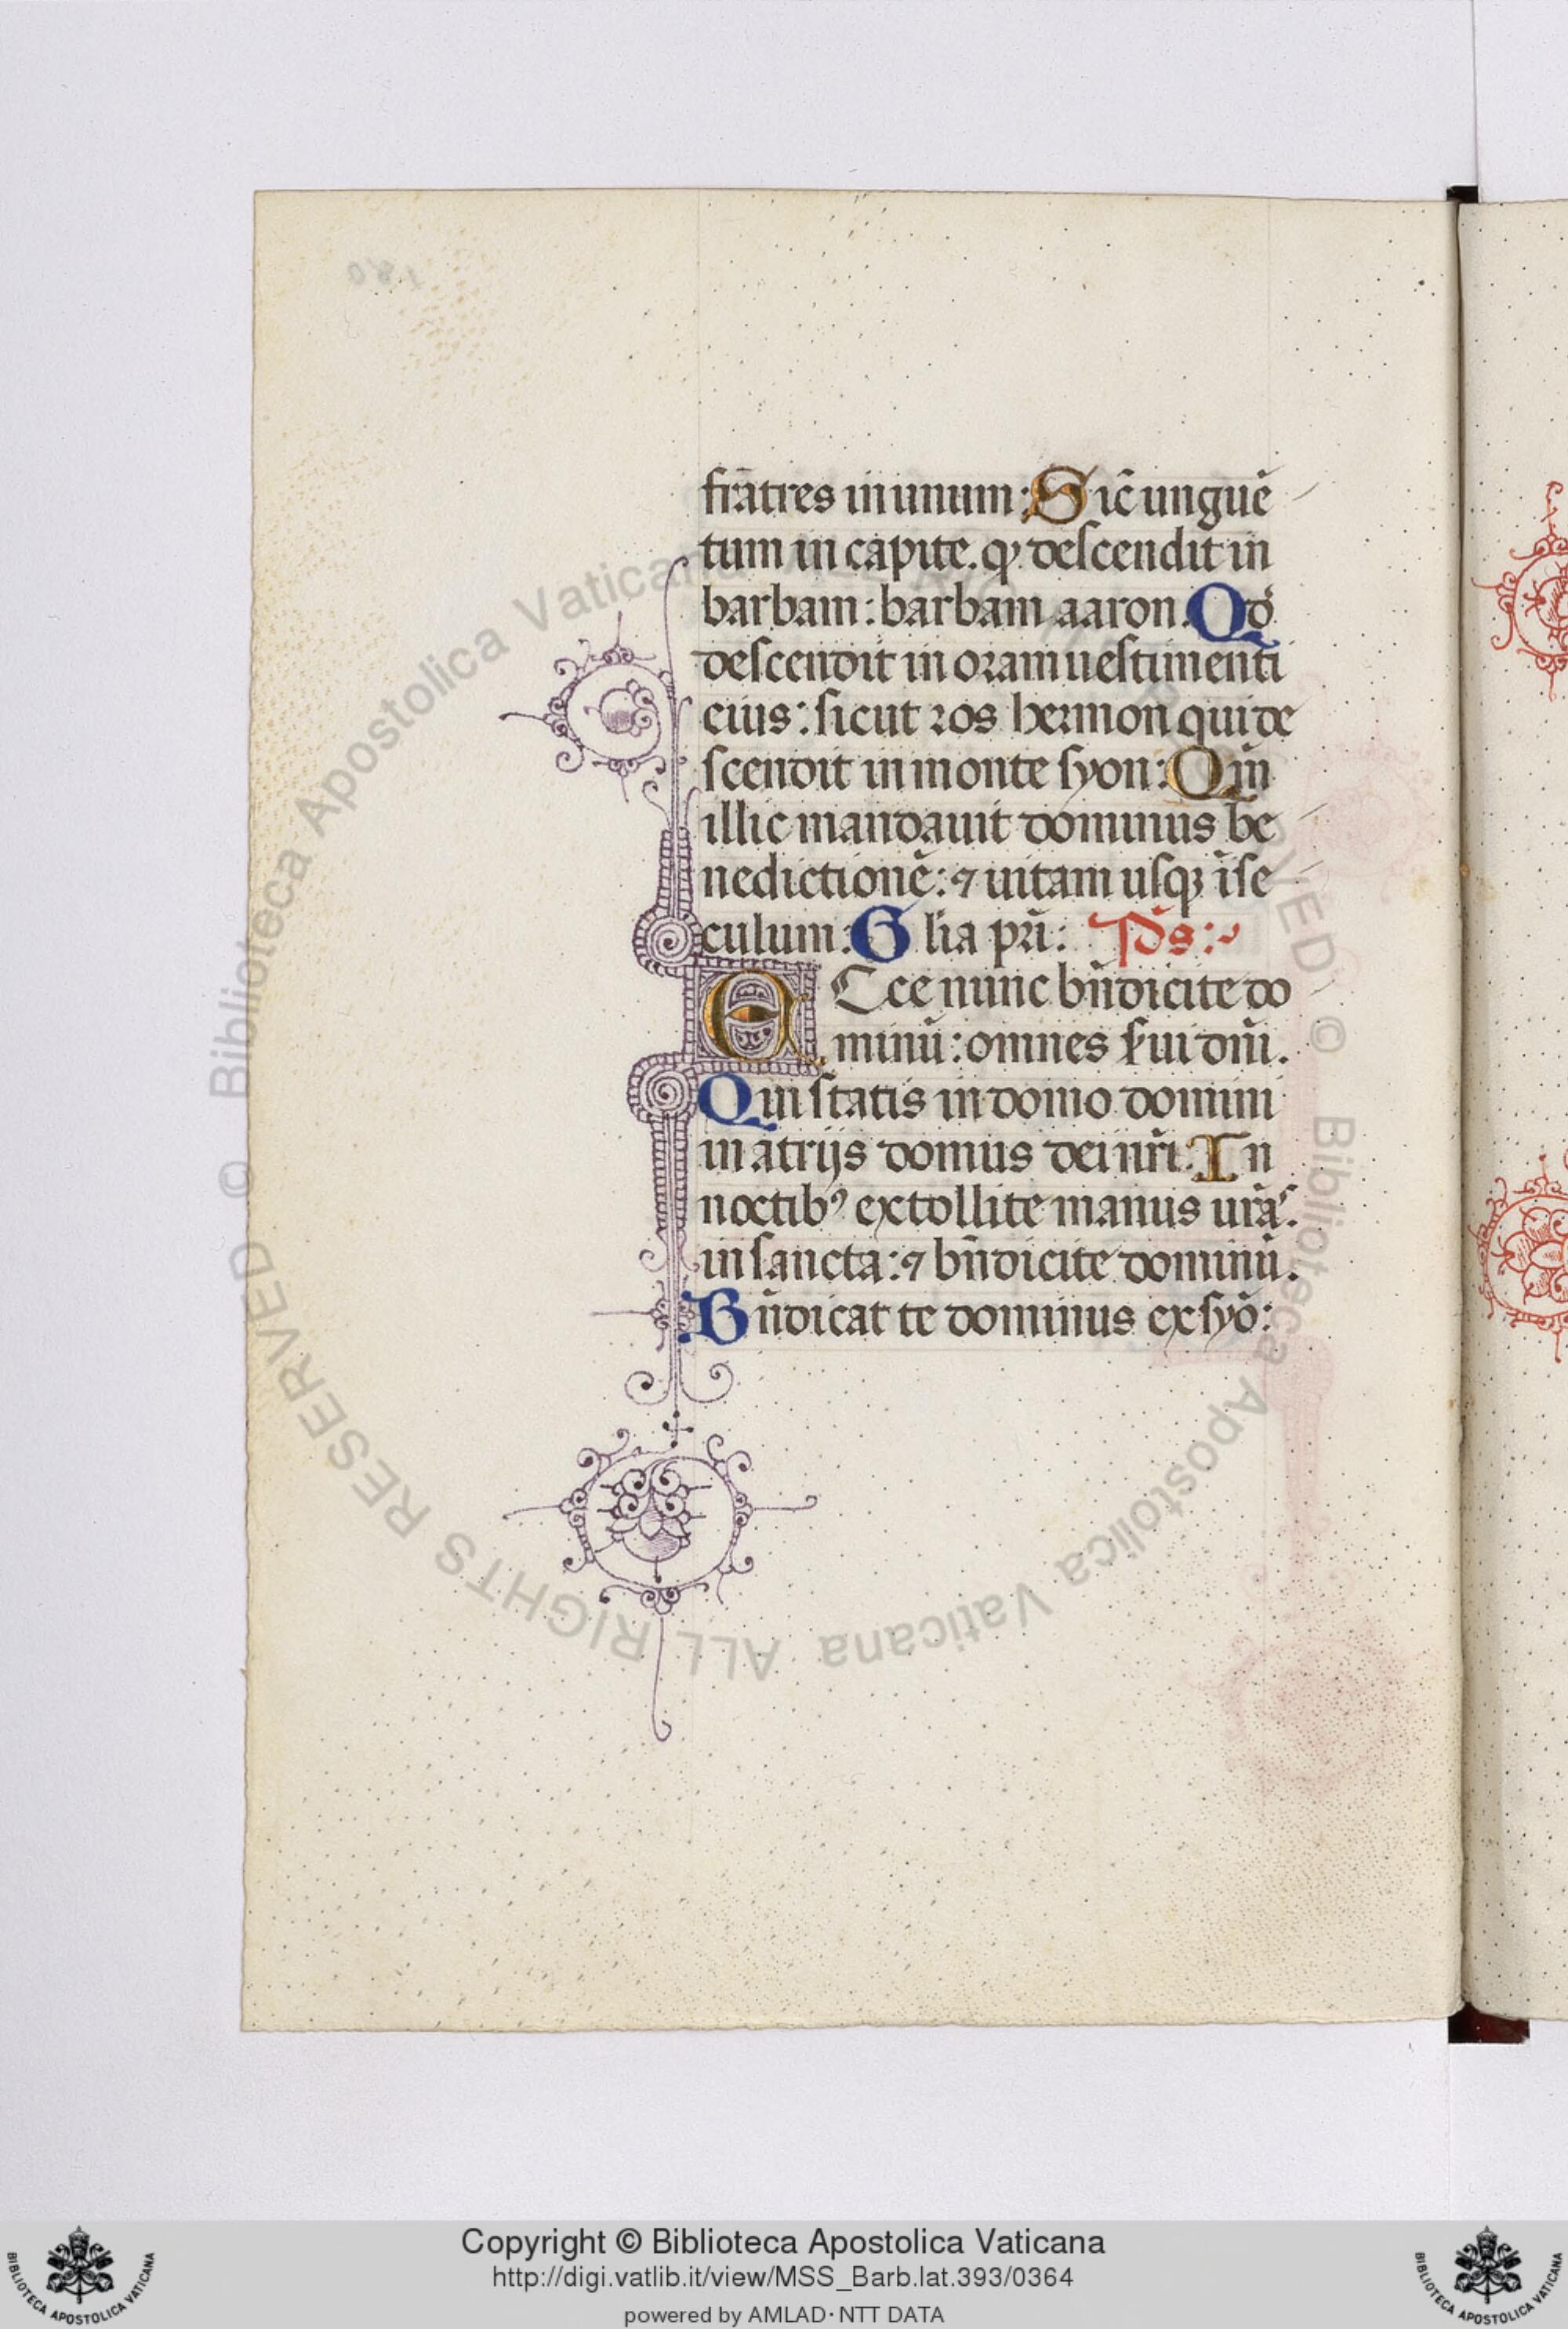 fratres in unum: Sic̄ unguē
tum in capite. qđ descendit in
barbam: barbam aaron. Qđ
descendit in oram uestimenti
eius: sicut ros hermon qui de
scendit in monte syon: Qm̄
illic mandauit dominus be
nedictionē: ⁊ uitam usqꝫ ī se
culum: Glia pr̄i: Ps:
ECce nunc bn̄dicite do
minū: omnes s̄ui dn̄i.
Qui statis in domo domini
in atrijs domus dei nr̄i: In
noctibꝰ extollite manus ur̄as.
in sancta: ⁊ bn̄dicite dominū.
Bn̄dicat te dominus ex syō:
© Biblioteca Apostolica Vaticana ALL RIGHTS RESERVED
Copyright © Biblioteca Apostolica Vaticana
http://digi.vatlib.it/view/MSS_Barb.lat.393/0364
powered by AMLAD·NTT DATA
BIBLIOTECA APOSTOLICA VATICANA
BIBLIOTECA APOSTOLICA VATICANA